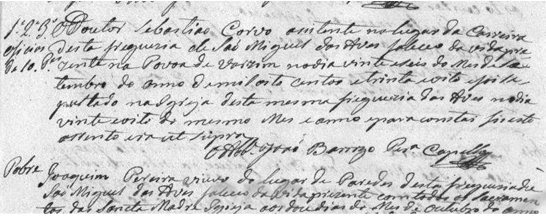 1º 2º 3º O Doutor Sebastiaõ Corvo asistente no lugar da Carreira
oficios desta freguesia de Saõ Miguel das Aves faleceo da vida pre
de 10. P.es zente na Povoa de Varzim no dia vinte e seis do Mes de Se
tembro do anno de mil oito centos e trinta e oito e foi se
pultado na Igreja desta mesma freguesia das Aves no dia
vinte e oito do mesmo Mes e anno e para constar fis este
assento era ut supra
O Ab.e Joaõ Barrozo Per.a Capella
Pobre Joaquim Pereira viuvo do lugar de Paredes desta freguesia de
Saõ Miguel das Aves faleceo da vida prezente com todos os Sacramen
tos da Santa Madre Igreja aos dous dias do Mes de Outubro do anno